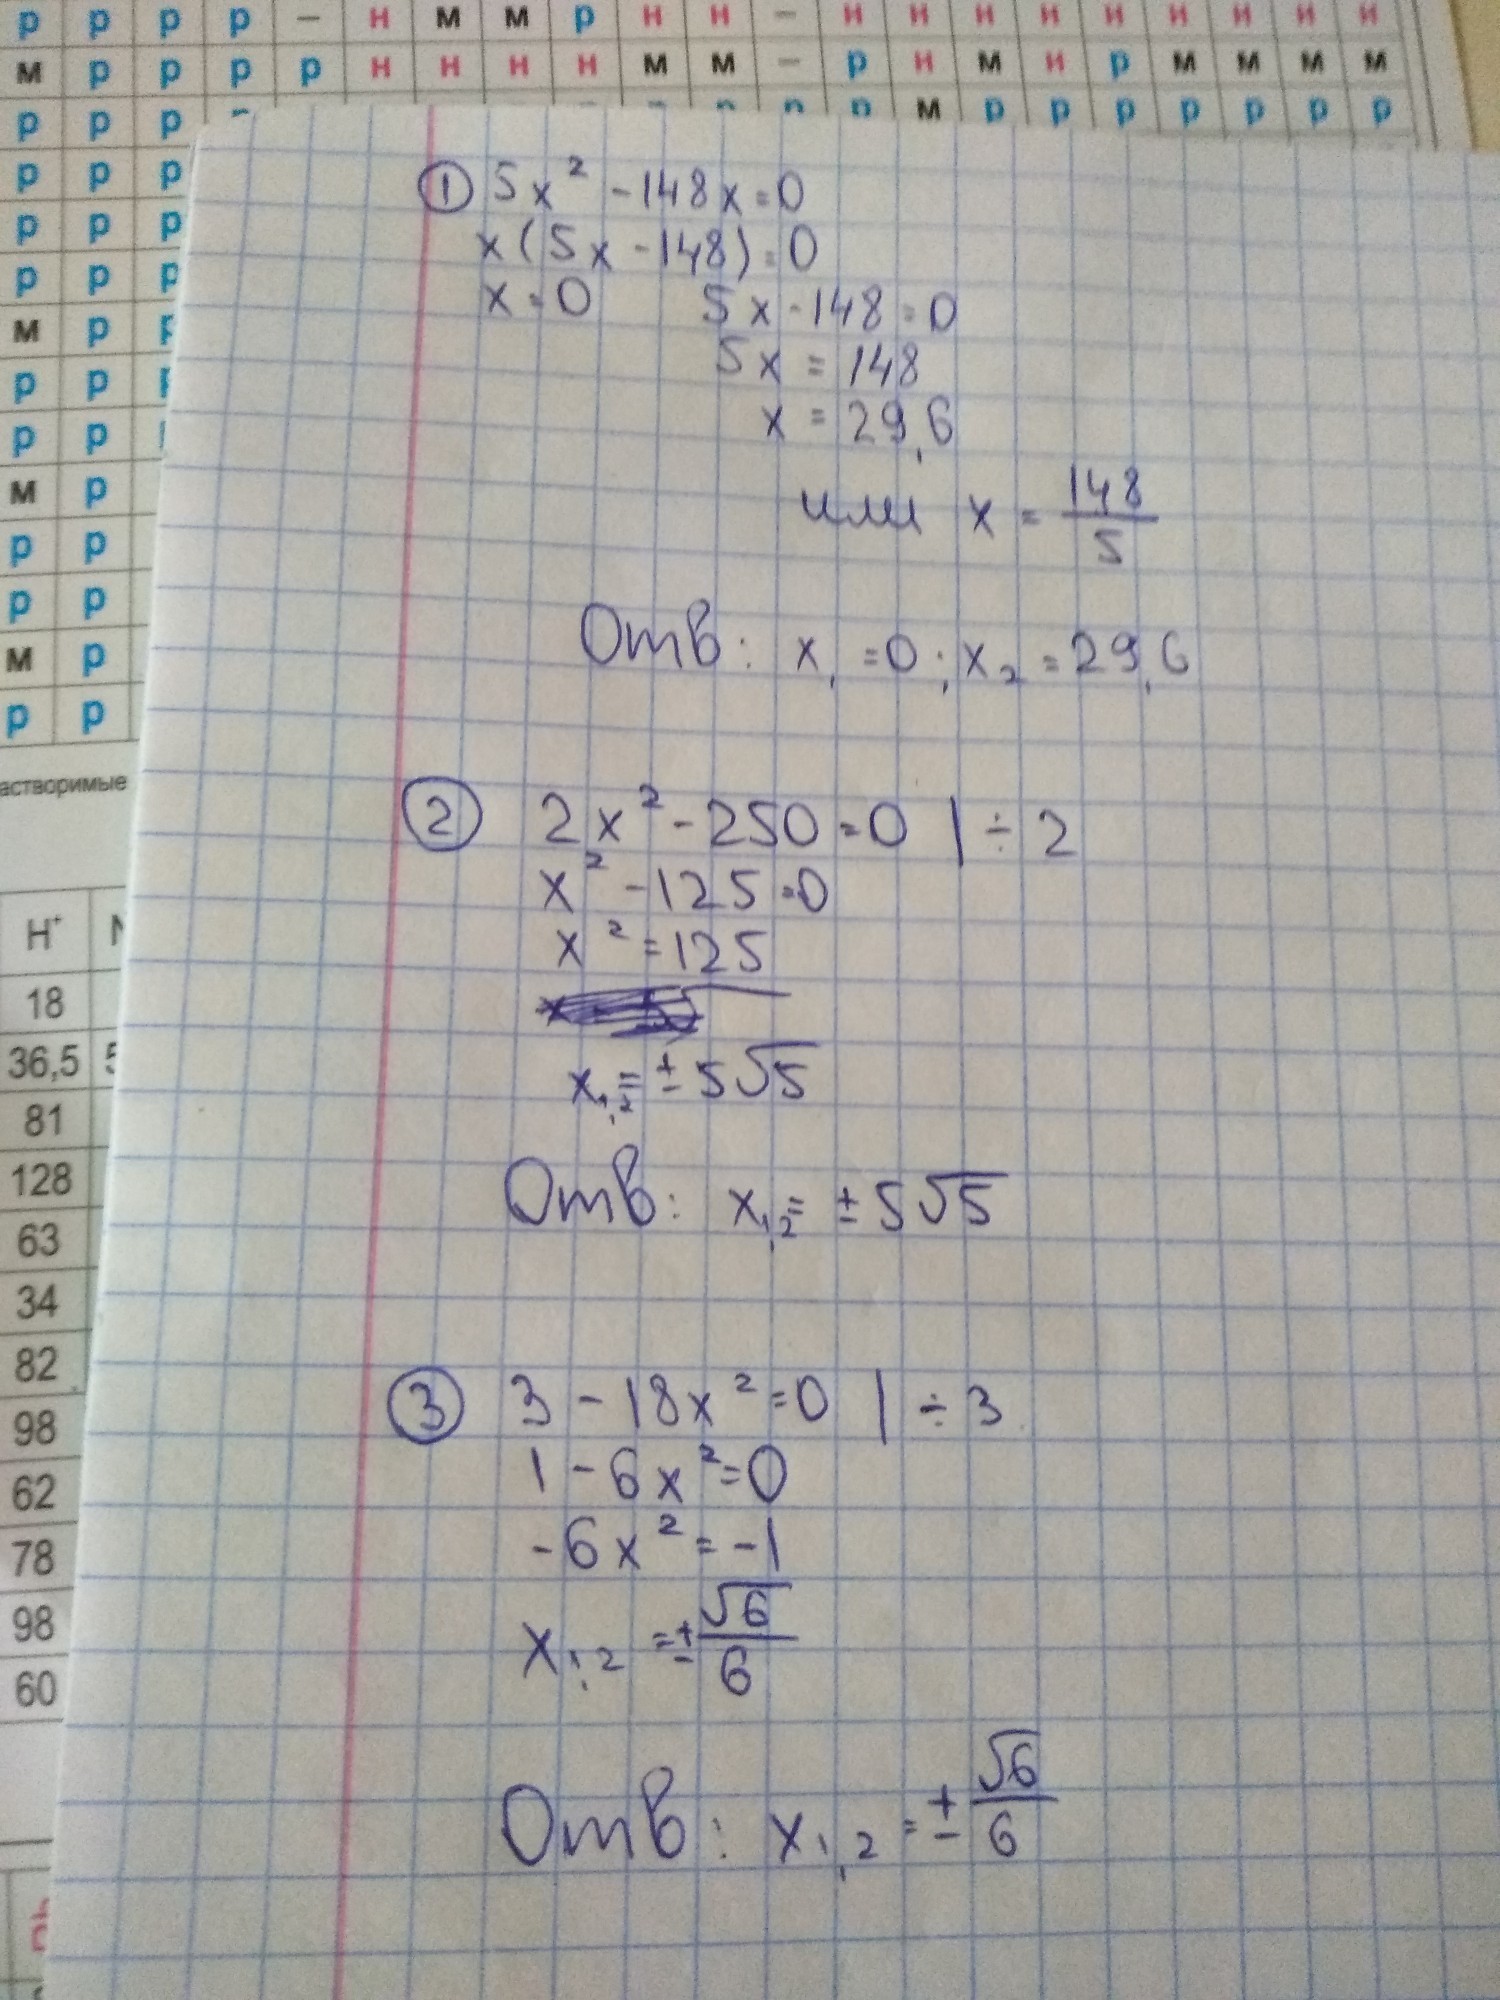 Р Р Р Р – Н М М Р Н Н – Н Н Н Н Н Н Н Н Н
М Р Р Р Р Н Н Н Н М М – Р Н М Н Р М М М М
Р Р Р М Р Р Р Р Р Р Р
Р Р Р
Р Р Р
Р Р Р
М Р
Р Р
Р Р
М Р
Р Р
Р Р
М Р
Р Р
астворимые
H⁺
18
36,5
81
128
63
34
82
98
62
78
98
60
① 5x² - 148x = 0
x(5x - 148) = 0
x = 0 5x - 148 = 0
5x = 148
x = 29,6
или x = 148/5
Отв: x₁ = 0; x₂ = 29,6
② 2x² - 250 = 0 | ÷ 2
x² - 125 = 0
x² = 125
x₁,₂ = ± 5√5
Отв: x₁,₂ = ± 5√5
③ 3 - 18x² = 0 | ÷ 3
1 - 6x² = 0
-6x² = -1
x₁,₂ = ± √6/6
Отв: x₁,₂ = ± √6/6